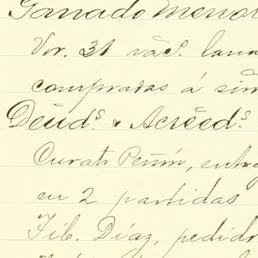 Ganado Menor
Vor. 31 vac. lana
compradas á sim
Deud.s & Acreed.s
Curato Peñón, entre
en 2 partidas
Fib. Díaz, pedido